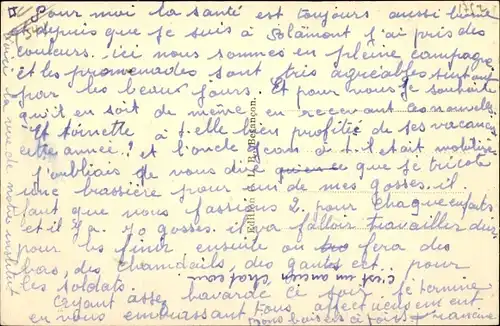 Pour moi la santé est toujours aussi bonne
et depuis que je suis à Blâmont j'ai pris des
couleurs. ici nous sommes en pleine campagne
et les promenades sont très agréables surtout
par les beaux jours. Et pour vous je souhaite
qu'il en soit de même en recevant les nouvelles.
Et Toinette a-t-elle bien profité de ses vacances
cette année? et l'oncle a-t-il était mobilisé
j'oubliais de vous dire que je tricote
une brassière pour un de mes gosses. il
faut que nous fassions 2 pour chaque enfants
et il y a 70 gosses. il va falloir travailler dur
pour les finir ensuite on fera des
bas, des chandails, des gants ect. pour
les soldats.
Croyant assez bavardé ce soir je termine
en vous embrassant tous affectueusement
Francine
Voici la vue de notre institut
Edition B. Besançon.